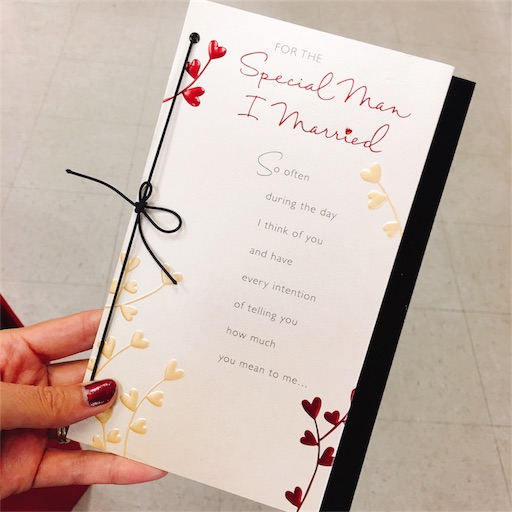 FOR THE
Special Man
I Married
So often
during the day
I think of you
and have
every intention
of telling you
how much
you mean to me...